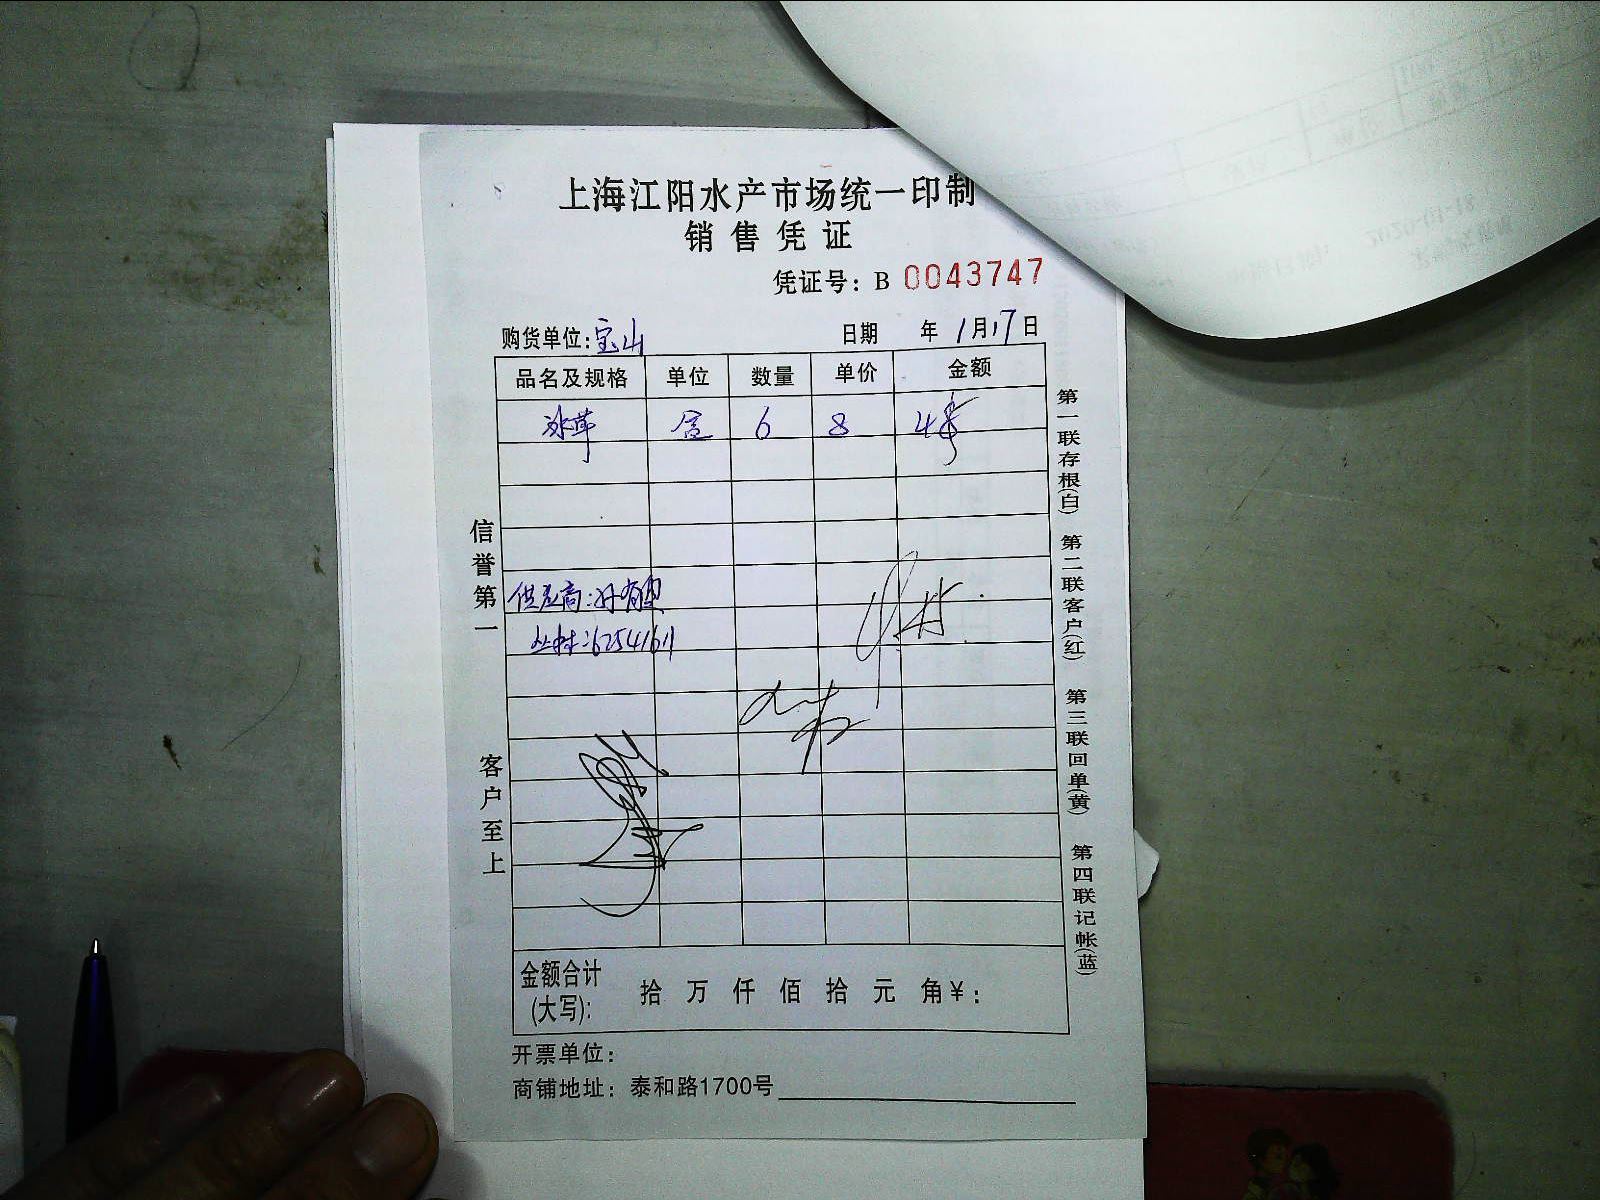 上海江阳水产市场统一印制
销售凭证
凭证号：B 0043747
购货单位：宝山 日期 年 1月17日
品名及规格 单位 数量 单价 金额
6 8
供应商：好有
62541611
金额合计(大写)： 拾 万 仟 佰 拾 元 角 ¥：
开票单位：
商铺地址：泰和路1700号
信誉第一
客户至上
第一联存根(白)
第二联客户(红)
第三联回单(黄)
第四联记帐(蓝)